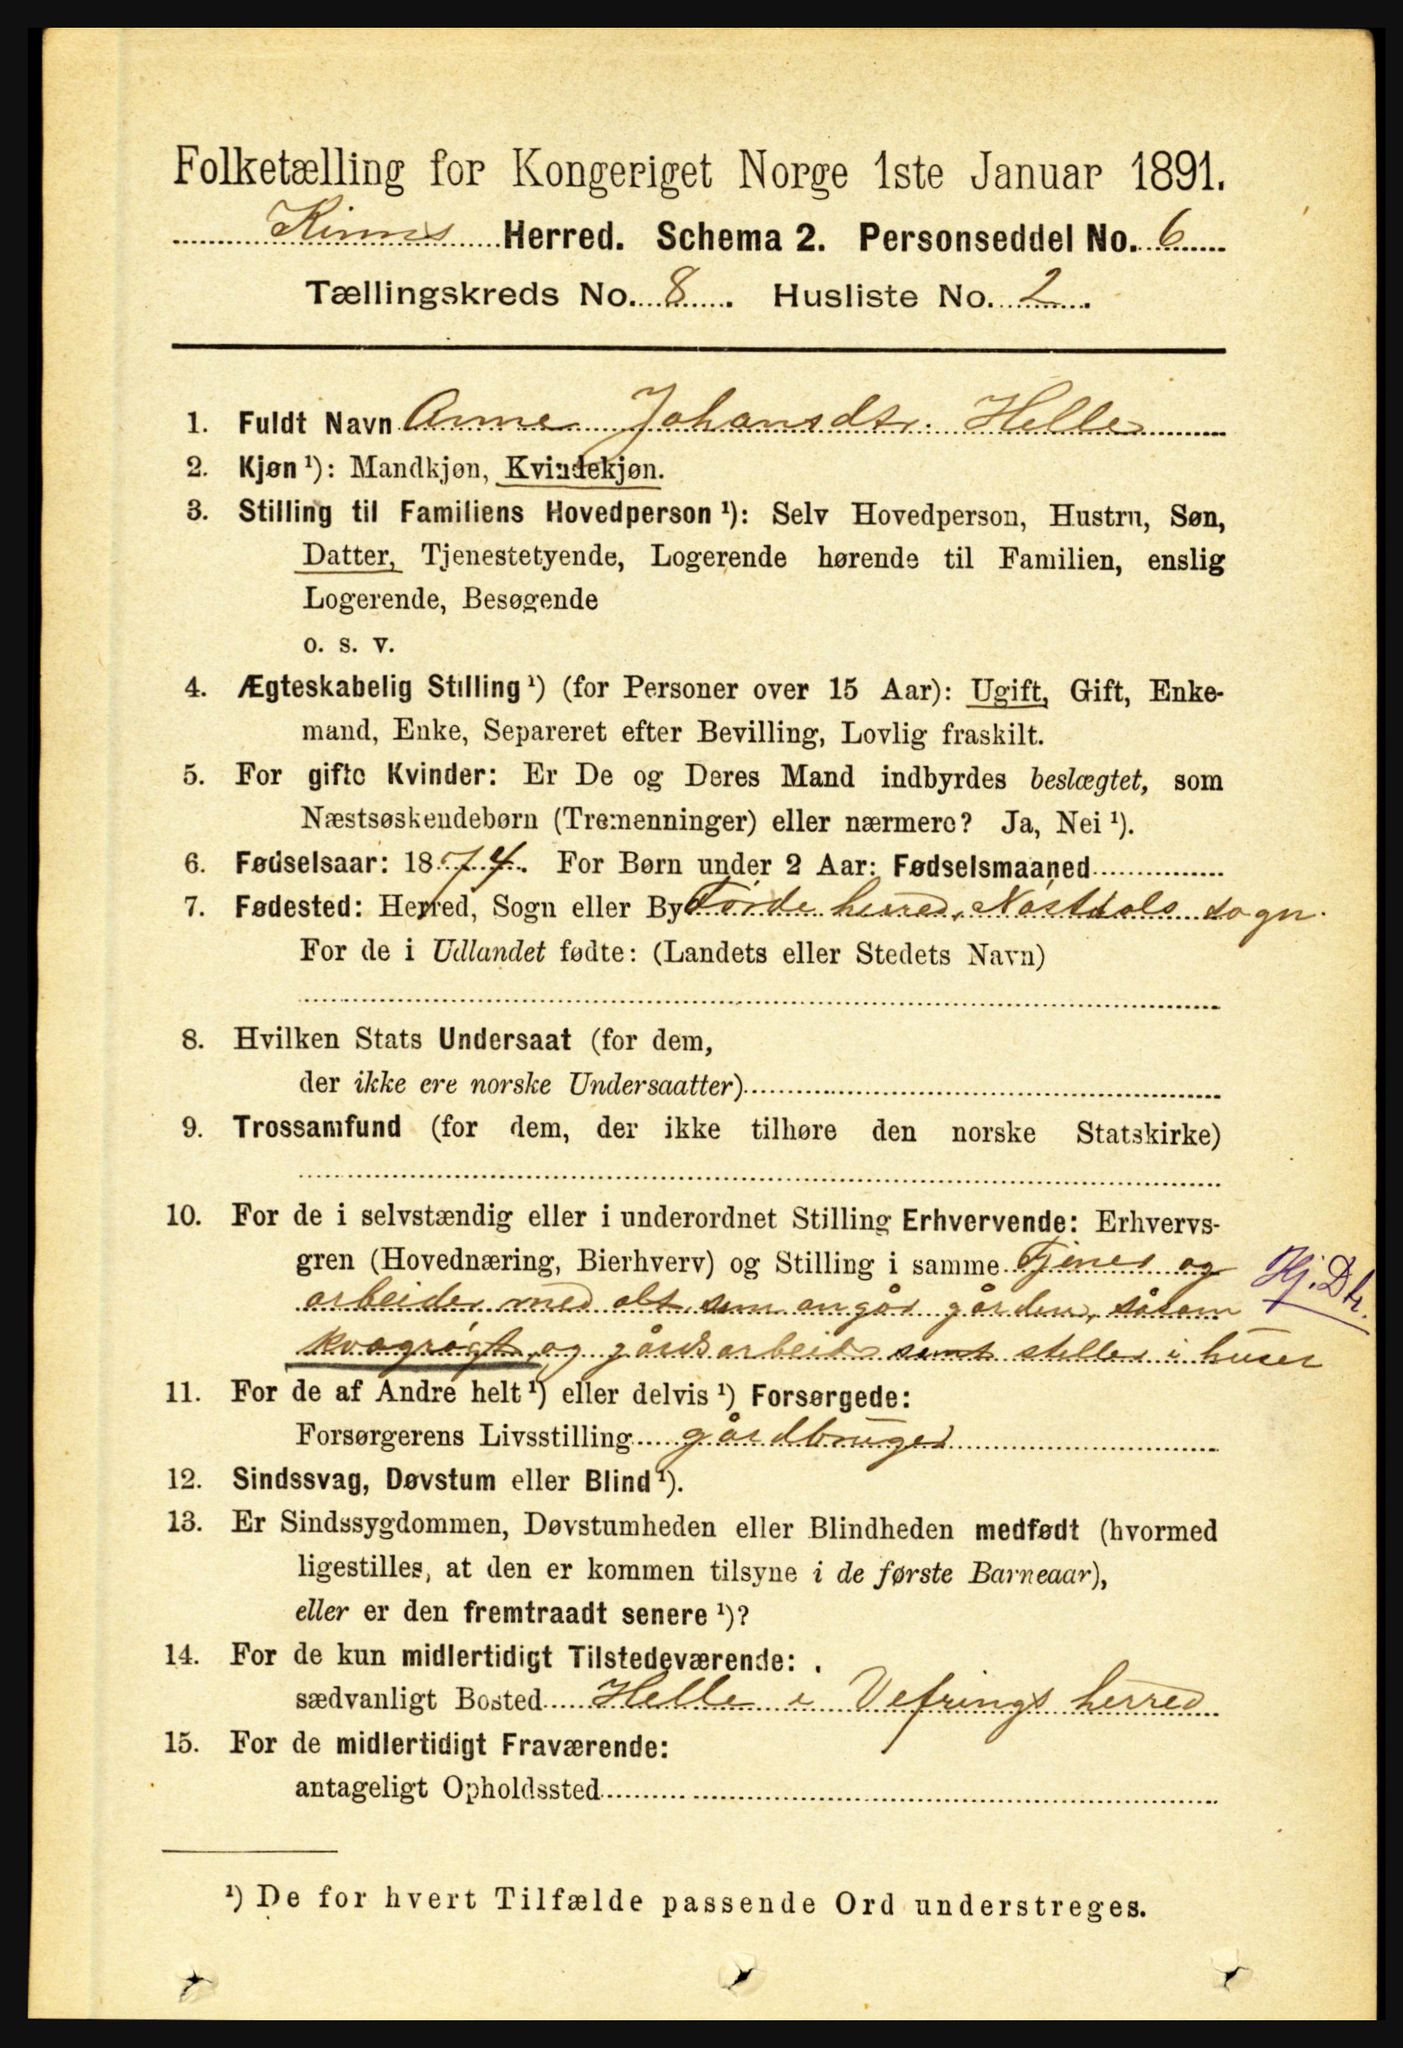 Folketælling for Kongeriget Norge 1ste Januar 1891.
Kinns Herred. Schema 2. Personseddel No. 6
Tællingskreds No. 8. Husliste No. 2.
1. Fuldt Navn Anne Johansdtr. Helle
2. Kjøn ¹): Mandkjøn, Kvindekjøn.
3. Stilling til Familiens Hovedperson ¹): Selv Hovedperson, Hustru, Søn,
Datter, Tjenestetyende, Logerende hørende til Familien, enslig
Logerende, Besøgende
o. s. v.
4. Ægteskabelig Stilling ¹) (for Personer over 15 Aar): Ugift, Gift, Enke-
mand, Enke, Separeret efter Bevilling, Lovlig fraskilt.
5. For gifte Kvinder: Er De og Deres Mand indbyrdes beslægtet, som
Næstsøskendebørn (Tremenninger) eller nærmere? Ja, Nei ¹).
6. Fødselsaar: 1874. For Børn under 2 Aar: Fødselsmaaned
7. Fødested: Herred, Sogn eller By Førde herred, Nøstdals sogn.
For de i Udlandet fødte: (Landets eller Stedets Navn)
8. Hvilken Stats Undersaat (for dem,
der ikke ere norske Undersaatter)
9. Trossamfund (for dem, der ikke tilhøre den norske Statskirke)
10. For de i selvstændig eller i underordnet Stilling Erhvervende: Erhvervs-
gren (Hovednæring, Bierhverv) og Stilling i samme Tjener og
Hj. Dtr.
arbeider med alt som angår gården, såsom
kvægrøgt, og gårdsarbeide samt steller i huset
11. For de af Andre helt ¹) eller delvis ¹) Forsørgede:
Forsørgerens Livsstilling gårdbruger
12. Sindssvag, Døvstum eller Blind ¹).
13. Er Sindssygdommen, Døvstumheden eller Blindheden medfødt (hvormed
ligestilles, at den er kommen tilsyne i de første Barneaar),
eller er den fremtraadt senere ¹)?
14. For de kun midlertidigt Tilstedeværende:
sædvanligt Bosted Helle i Vefrings herred
15. For de midlertidigt Fraværende:
antageligt Opholdssted
¹) De for hvert Tilfælde passende Ord understreges.